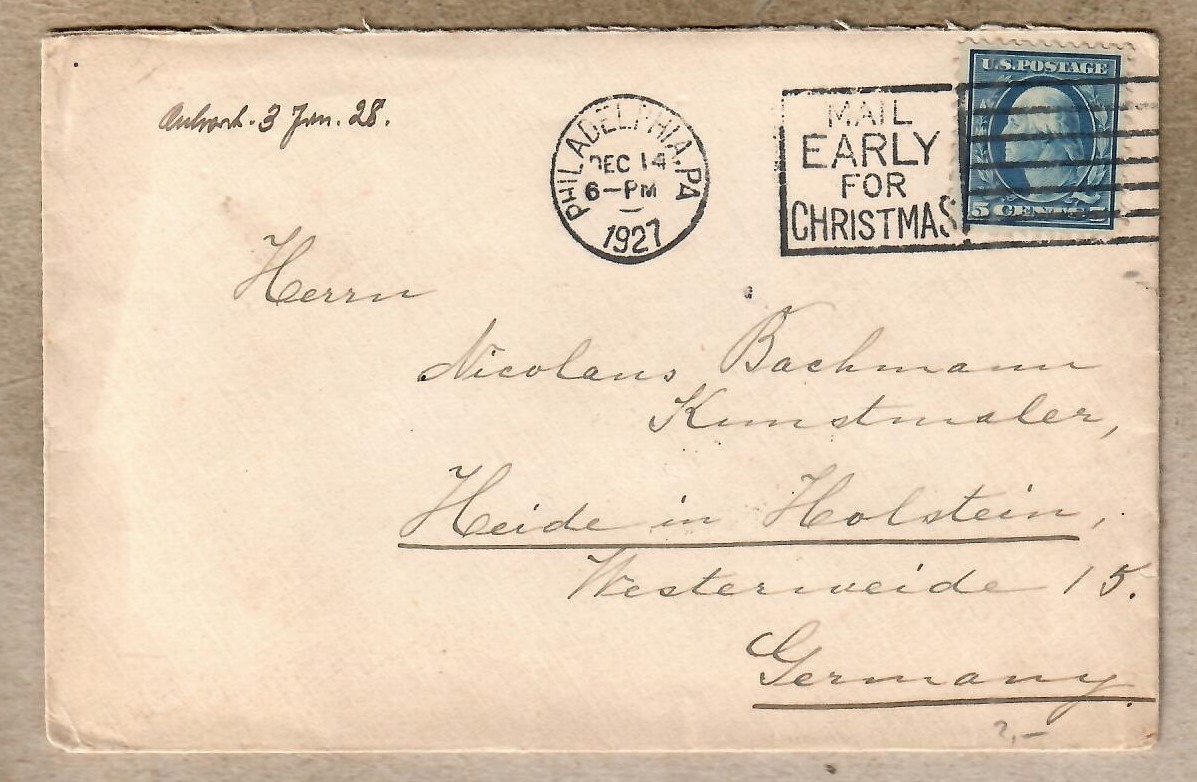 Antwort. 3 Jan. 28.
PHILADELPHIA, PA
DEC 14
6-PM
1927
MAIL
EARLY
FOR
CHRISTMAS
U.S. POSTAGE
5 CENTS 5
Herrn
Nicolaus Bachmann
Kunstmaler,
Heide in Holstein,
Westerweide 15.
Germany.